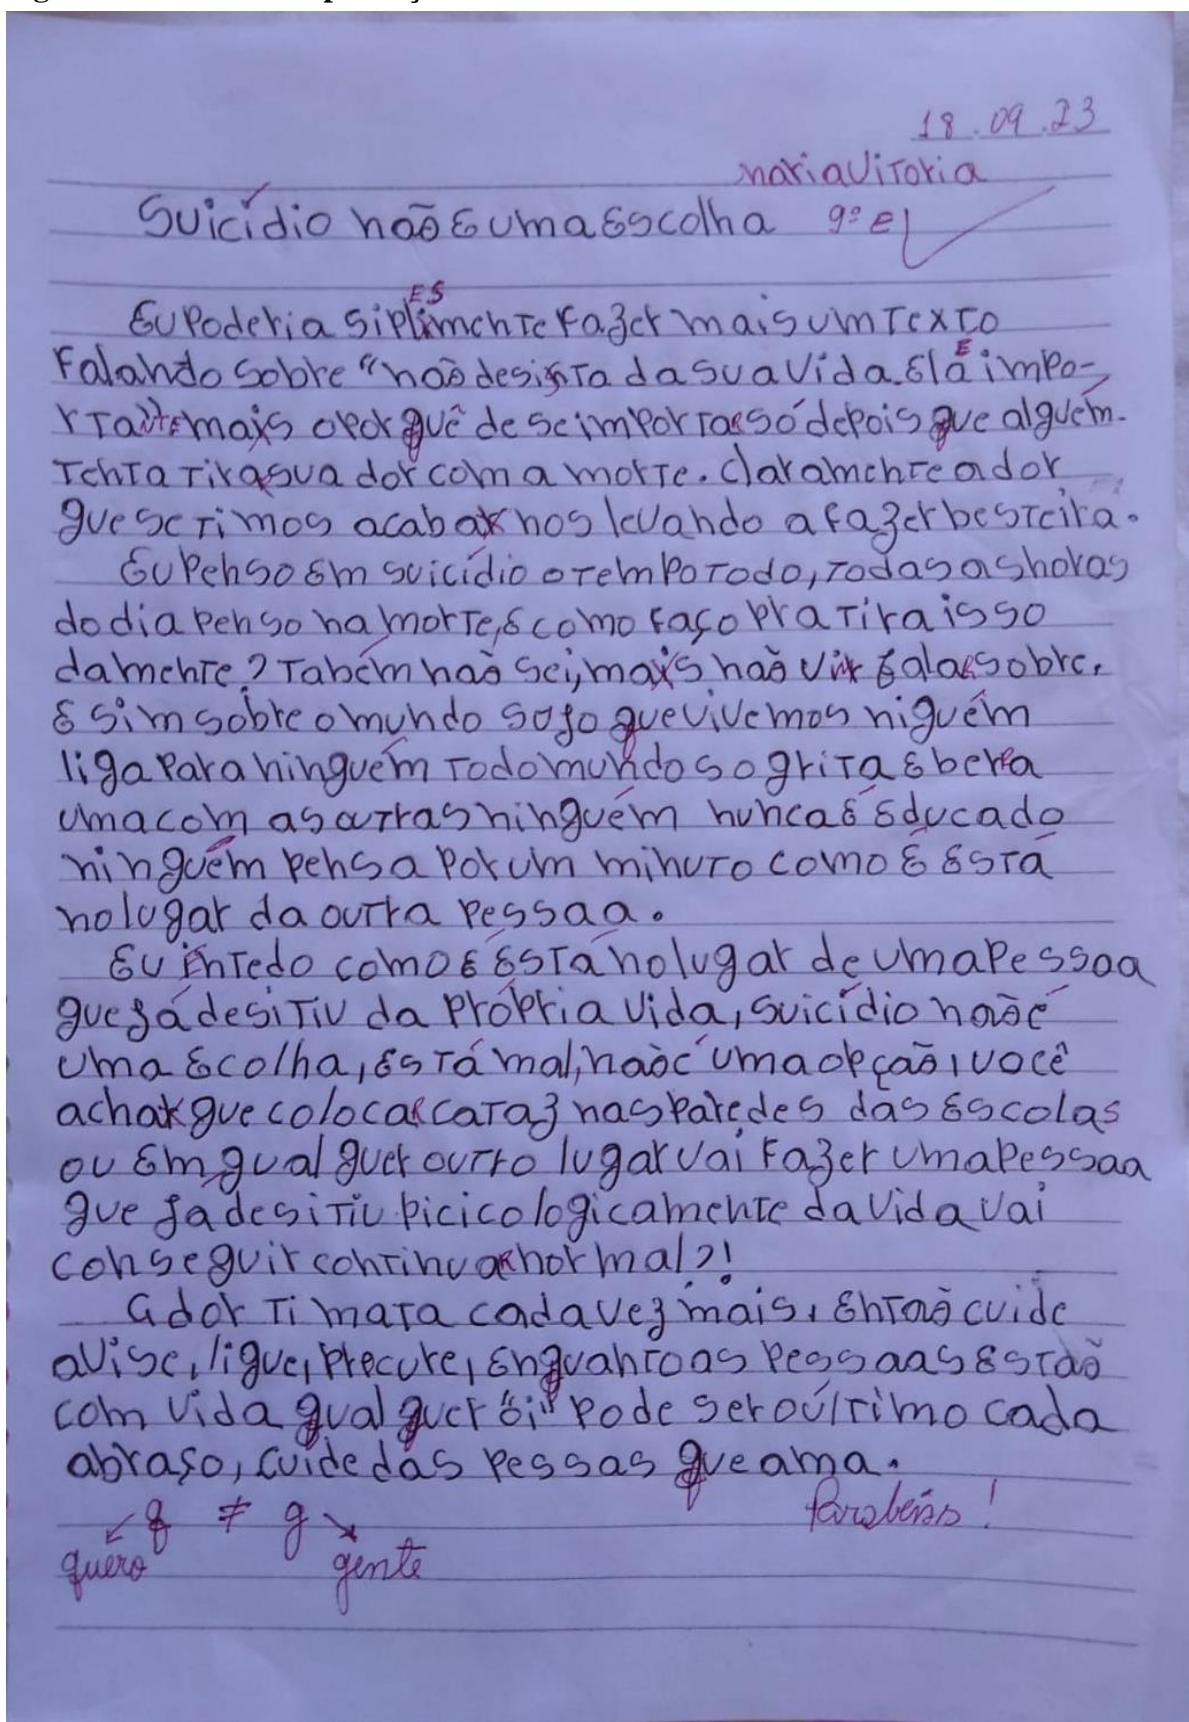 18.09.23
maria Vitoria
Suicídio não é uma escolha 9º E
Eu poderia siplesmente fazer mais um texto
falando sobre "não desista da sua vida. Ela é impo-
rtante mais o por quê de se importar só depois que alguém
tenta tirar sua dor com a morte. Claramente a dor
que setimos acaba nos levando a fazer besteira.
Eu penso em suicídio o tempo todo, todas as horas
do dia penso na morte, e como faço pra tira isso
da mente? Tabém não sei, mais não vim falar sobre.
E sim sobre o mundo sujo que vivemos niguém
liga para ninguém todo mundo so grita e berra
uma com as outras ninguém nunca é educado
ninguém pensa por um minuto como é está
no lugar da outra pessaa.
Eu entedo como é está no lugar de uma pessaa
que já desitiu da própria vida, suicídio não é
uma escolha, está mal, não é uma opção, você
acha que colocar cataz nas paredes das escolas
ou em qualquer outro lugar vai fazer uma pessaa
que ja desitiu picicologicamente da vida vai
conseguir continuar normal?!
a dor ti mata cada vez mais, então cuide
avise, ligue, precure, enquanto as pessaas estão
com vida qualquer "oi" pode ser o último cada
abraço, cuide das pessas que ama.
q ≠ g Parabéns!
quero gente